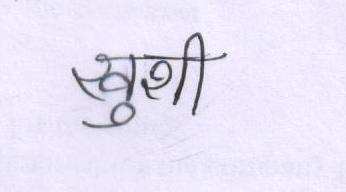 खुशी